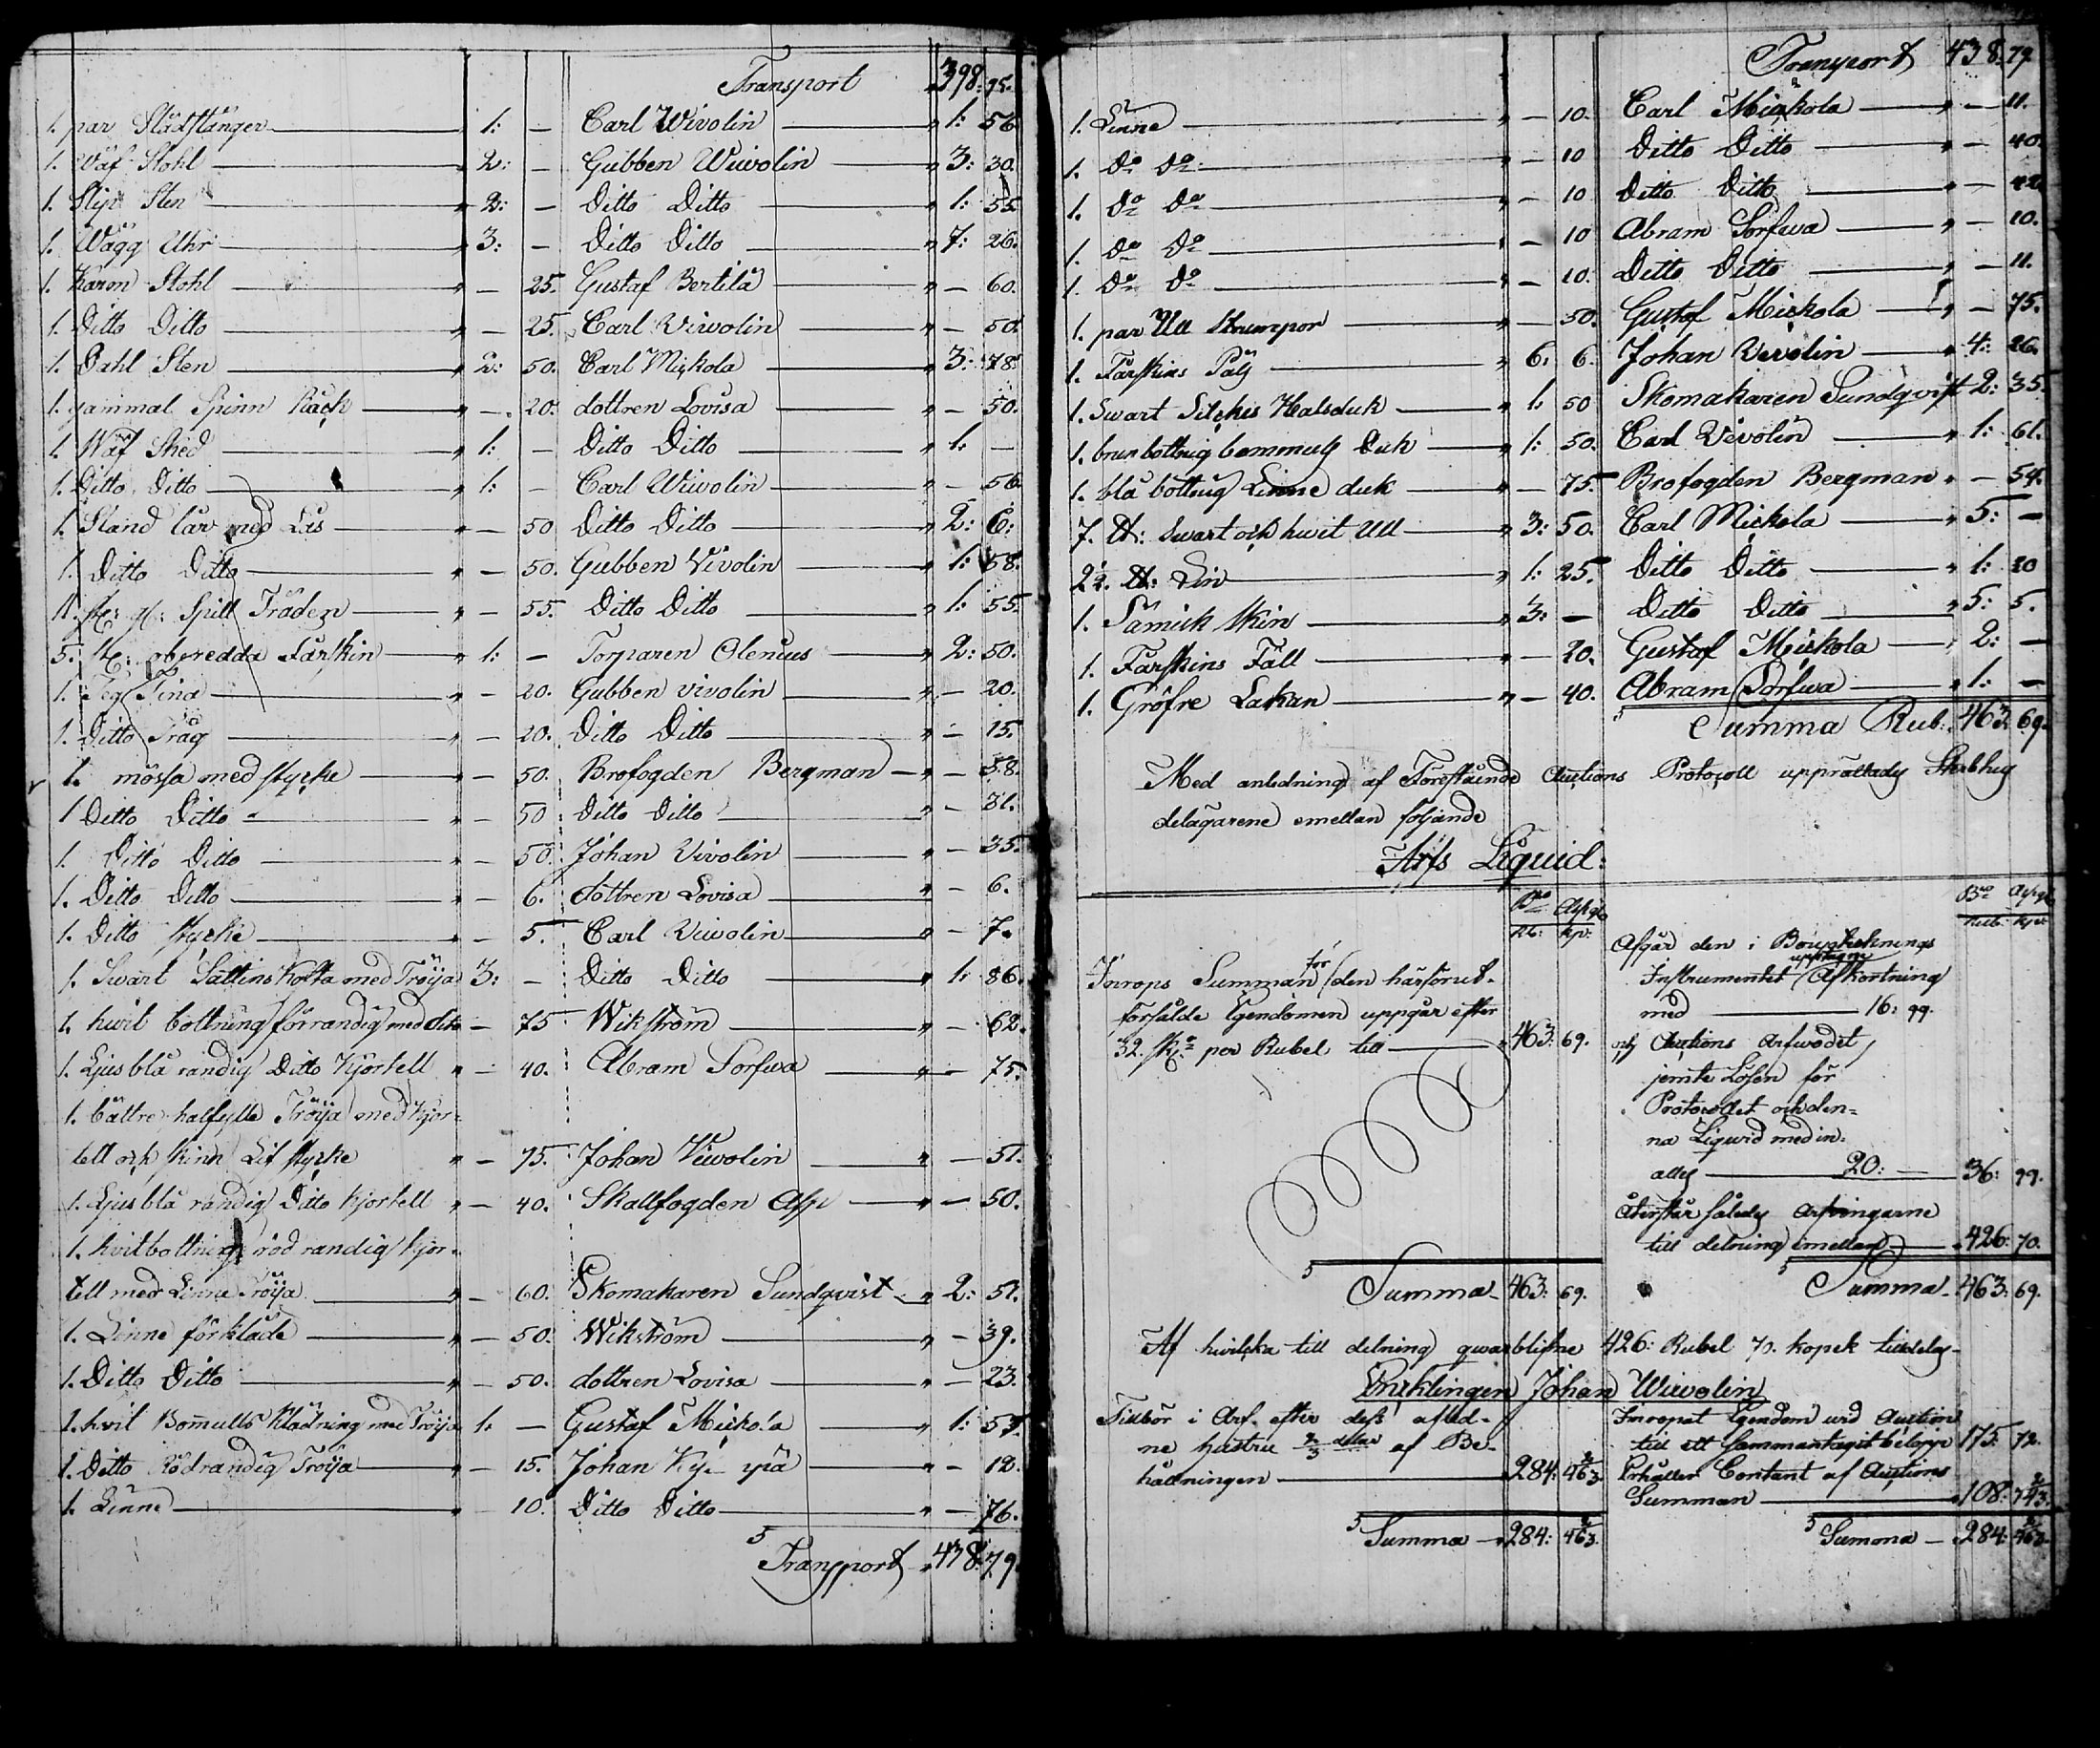 Transport 398: 95.
1. par Slädstänger — 1: — Carl Wivolin — 1: 56
1. Wäf Stohl — 2: — Gubben Wiwolin — 3: 30.
1. Slip Sten — 2: — Ditto Ditto — 1: 55
1. Wägg Uhr — 3: — Ditto Ditto — 7: 26.
1. Karon Stohl — 25. Gustaf Bertila — 60.
1. Ditto Ditto — 25. Carl Wivolin — 50.
1. Dahl Sten — 2: 50. Carl Mickola — 3: 78.
1. gammal Spinn Råck — 20. dottren Lovisa — 50.
1. Wäf Sked — 1: — Ditto Ditto — 1: —
1. Ditto Ditto — 1: — Carl Wiwolin — 56
1. Stånd lår med Lås — 50 Ditto Ditto — 2: 6:
1. Ditto Ditto — 50. Gubben Vivolin — 1: 58.
11. st: gl: Spill Träden — 55. Ditto Ditto — 1: 55.
5. st: oberedda Fårskin — 1: — Torparen Olenius — 2: 50.
1. Deg Tina — 20. Gubben vivolin — 20.
1. Ditto Tråg — 20. Ditto Ditto — 15.
1. mössa med stycke — 50. Brofogden Bergman — 58.
1 Ditto Ditto — 50 Ditto Ditto — 31.
1. Ditto Ditto — 50. Johan Vivolin — 35.
1. Ditto Ditto — 6. dottren Lovisa — 6.
1. Ditto stycke — 5. Carl Viwolin — 7.
1. Swart Sattins Kofta med Tröija 3: — Ditto Ditto — 1: 86.
1. hwit bottnug förrandig med dito — 75 Wikström — 62.
1. Ljus blå randig Ditto Kjortell — 40. Abram Torfwa — 75.
1. bättre halfylle Tröija med Kjor=
tell och skinn Lif stycke — 75. Johan Viwolin — 51.
1. Ljus blå randig Ditto Kjortell — 40. Skallfogden Asp — 50.
1. hvitbottnig röd randig Kjor=
tell med Linne Tröija — 60. Skomakaren Sundqvist — 2: 51.
1. Linne förkläde — 50. Wikström — 39.
1. Ditto Ditto — 50. dottren Lovisa — 23.
1. hvit Bomulls Klädning med Tröija 1: — Gustaf Mickola — 1: 57.
1. Ditto Rödrandig Tröija — 15. Johan — 12.
1. Linne — 10. Ditto Ditto — 76.
Transport 438: 79.
Transport 438: 79.
1. Linne — 10. Carl Mickola — 11.
1. Do Do — 10 Ditto Ditto — 40.
1. Do Do — 10 Ditto Ditto — 42
1. Do Do — 10 Abram Torfwa — 10.
1. Do Do — 10. Ditto Ditto — 11.
1. par Ull Strumpor — 50. Gustaf Mickola — 75.
1. Fårskins Päls — 6: 6. Johan Vivolin — 4: 26.
1. Swart Silckes Halsduk — 1: 50 Skomakaren Sundqvist 2: 35.
1. brun bottnig bommuls Duk — 1: 50. Carl Vivolin — 1: 61.
1. blå bottnig Linne duk — 75. Brofogden Bergman — 54.
7. ℔: Swart och hwit Ull — 3: 50. Carl Mickola — 5: —
2½. ℔: Lin — 1: 25. Ditto Ditto — 1: 20
1. Sämsk Skin — 3: — Ditto Ditto — 5: 5.
1. Fårskins Fäll — 20. Gustaf Mickola — 2: —
1. Gröfre Lakan — 40. Abram Torfwa — 1: —
Summa Rub: 463: 69.
Med anledning af Föreståinde Auctions Protocoll upprättades Sterbhus
delägarene emellan följande
Arfs Liquid:
Bco Assgl
Rb: Kp:
Inrops Summan för den härförut
försålde Egendomen uppgår efter
32. sk: per Rubel till — 463: 69.
Summa 463: 69.
Bco Assgl
Rub: Kop:
Afgår den i Bouptecknings
Instrumentet upptagne Afkortning
med — 16: 99.
och Auctions Arfwodet
jemte Lösen för
Protocollet och den=
na Liqwid med in.
alles — 20: — 36: 99.
Återstår således Arfvingarne
till delning emellan — 426: 70.
Summa 463: 69.
Af hwilcka till delning qwarblifne 426: Rubel 70. kopek tilldelas
Enklingen Johan Wiwolin
Tillbör i Arf efter dess aflid=
ne hustru 2/3 delar af Be=
hållningen — 284: 46 2/3
Summa 284: 46 2/3.
Inropat Egendom wid Auction
till ett sammantagit belopp 175: 72.
Erhåller Contant af Auctions
Summan — 108: 74 2/3.
Summa 284: 46 2/3.